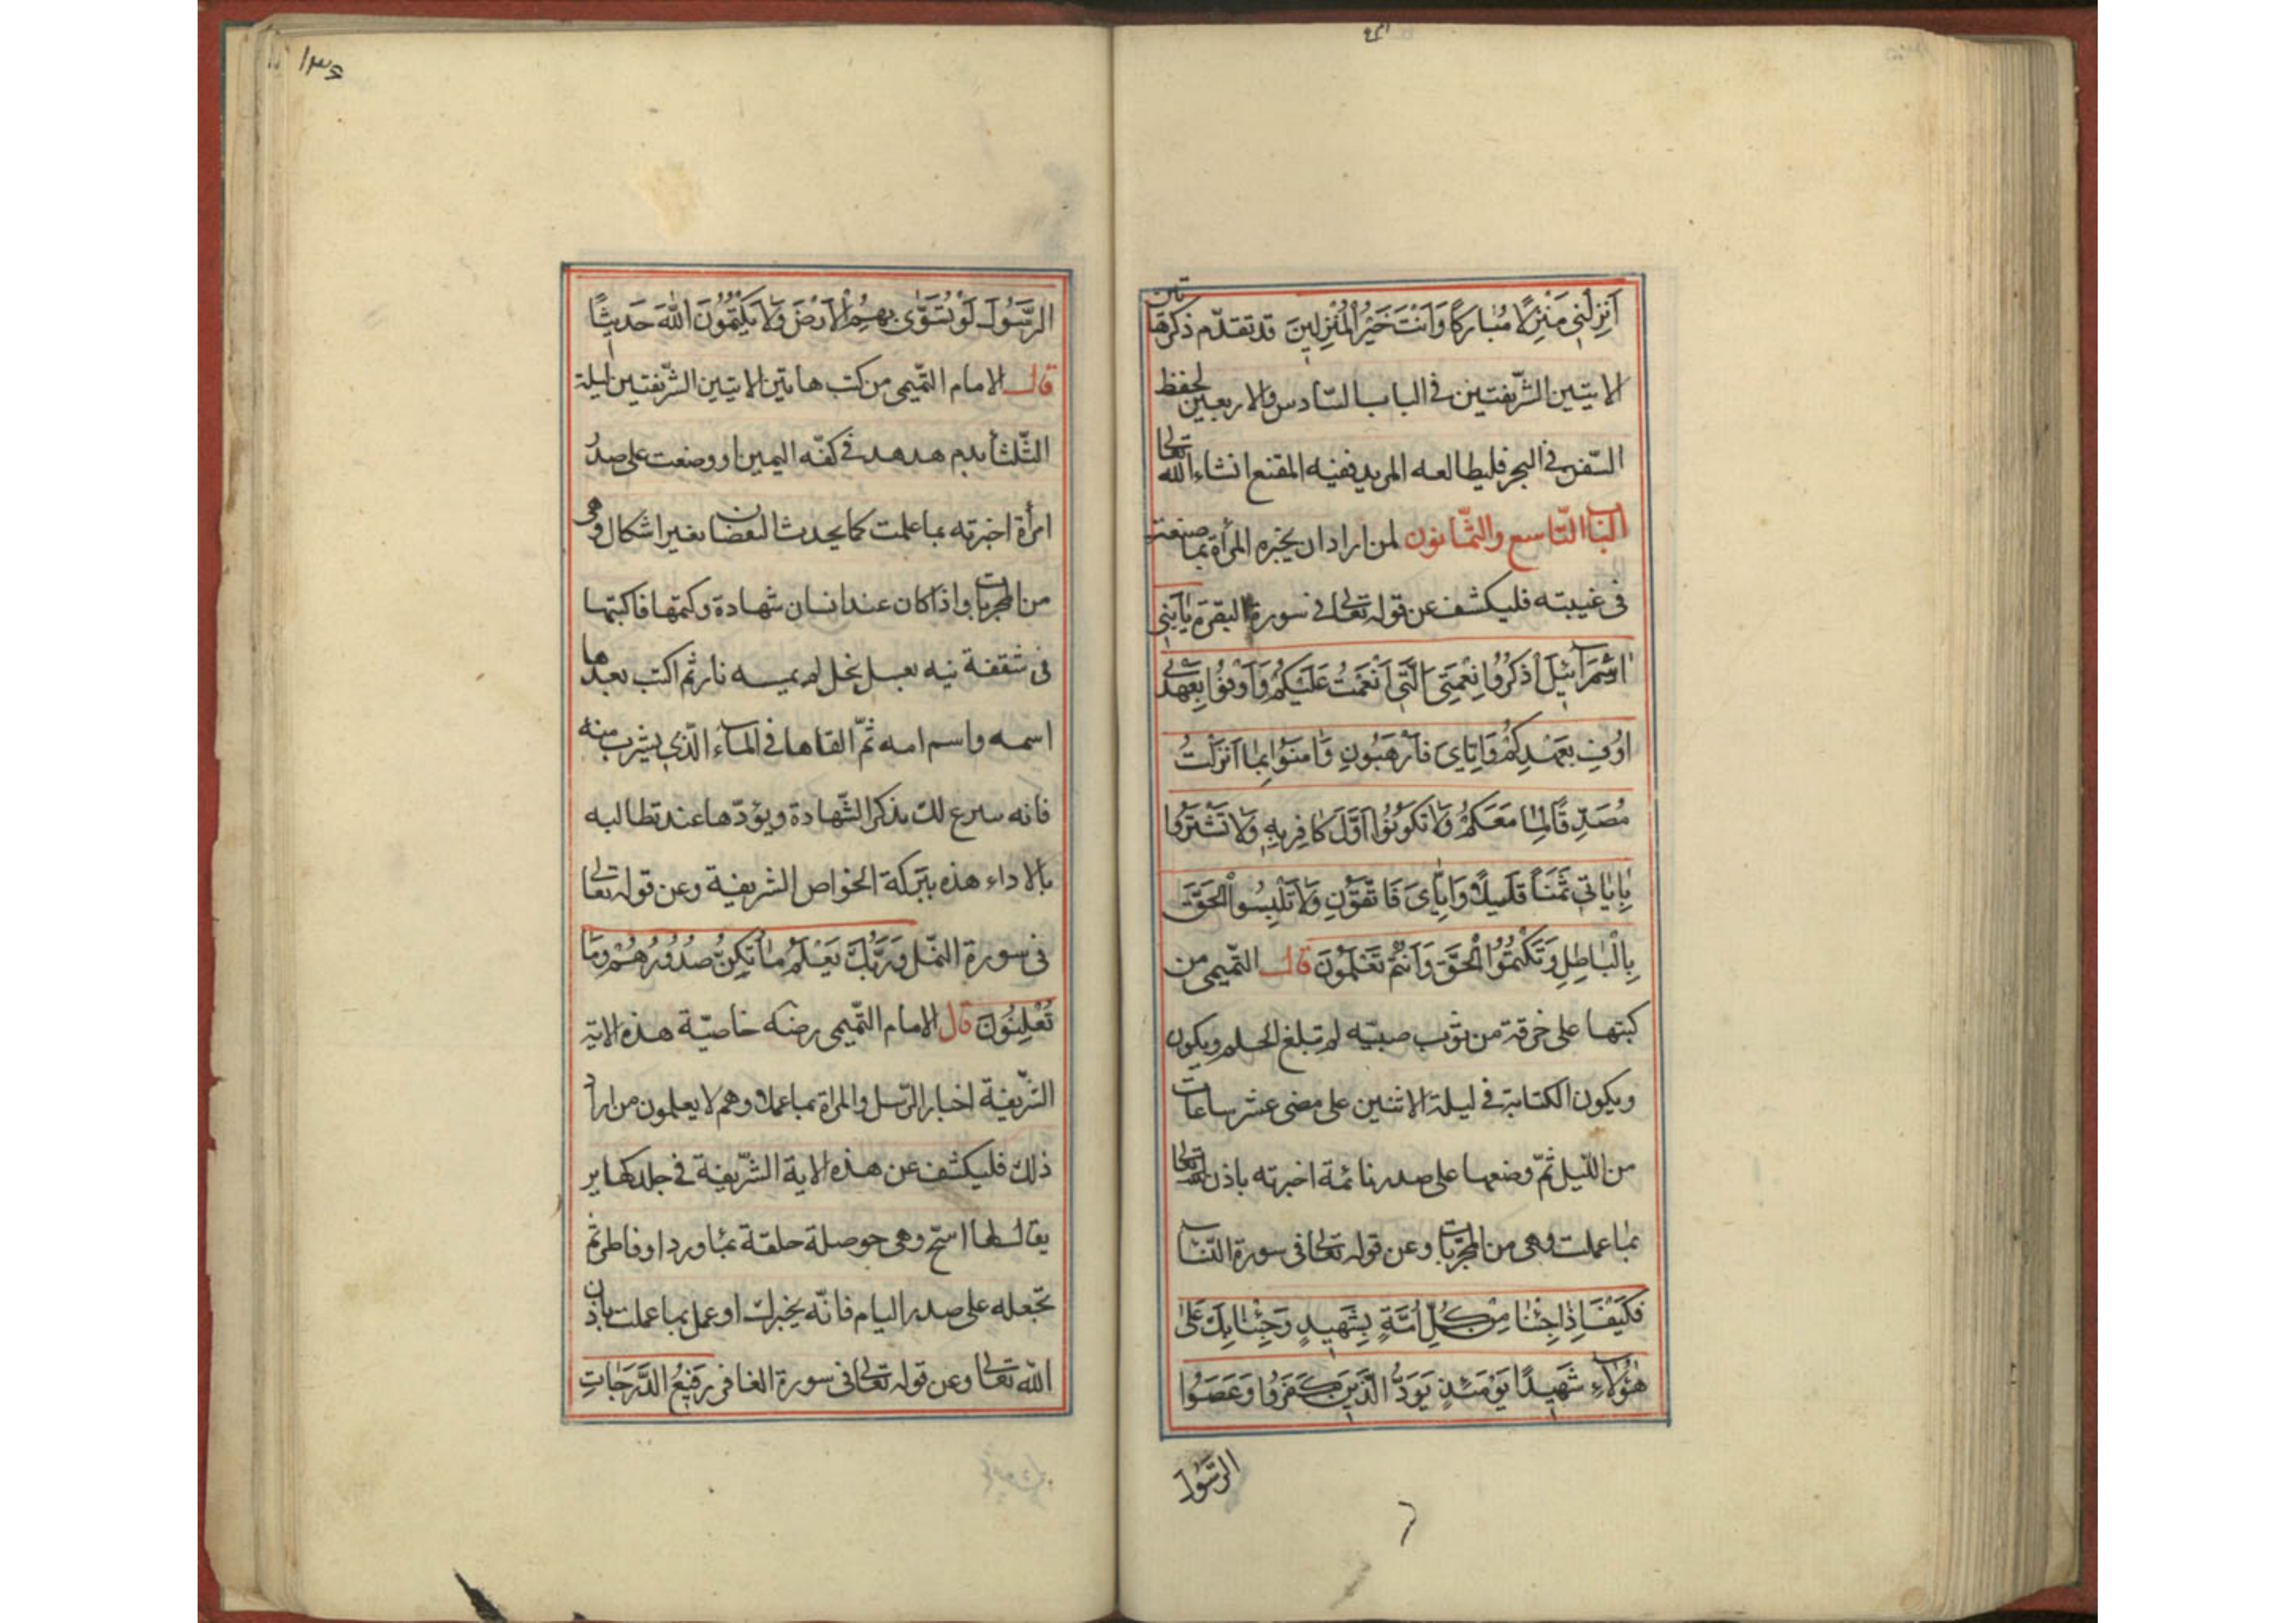 انزلني منزلا مباركا وانت خير المنزلين قد تقدم ذكر هاتين
الايتين الشريفتين في الباب السادس والاربعين لحفظ
السفن في البحر فليطالعه المريد ففيه المقنع انشاء الله تعالى
الباب التاسع والثمانون لمن اراد ان يخبره المرأة بما صنعت
في غيبته فليكشف عن قوله تعالى في سورة البقرة يَا بَنِي
اِسْرَائِيلَ اذْكُرُوا نِعْمَتِيَ الَّتِي اَنْعَمْتُ عَلَيْكُمْ وَاَوْفُوا بِعَهْدِي
اُوفِ بِعَهْدِكُمْ وَاِيَّايَ فَارْهَبُونِ وَآمِنُوا بِمَا اَنْزَلْتُ
مُصَدِّقًا لِمَا مَعَكُمْ وَلَا تَكُونُوا اَوَّلَ كَافِرٍ بِهِ وَلَا تَشْتَرُوا
بِآيَاتِي ثَمَنًا قَلِيلًا وَاِيَّايَ فَاتَّقُونِ وَلَا تَلْبِسُوا الْحَقَّ
بِالْبَاطِلِ وَتَكْتُمُوا الْحَقَّ وَاَنْتُمْ تَعْلَمُونَ قال التميمي من
كتبها على خرقة من ثوب صبيّه لم تبلغ الحلم ويكون
ويكون الكتابة في ليلة الاثنين على مضى عشر ساعات
من الليل ثمّ وضعها على صدر نائمة اخبرته باذن الله تعالى
بما عملت وهي من المجربات وعن قوله تعالى في سورة النساء
فَكَيْفَ اِذَا جِئْنَا مِنْ كُلِّ اُمَّةٍ بِشَهِيدٍ وَجِئْنَا بِكَ عَلَى
هٰؤُلَاءِ شَهِيدًا يَوْمَئِذٍ يَوَدُّ الَّذِينَ كَفَرُوا وَعَصَوُا
الرَّسُولَ
١٣٤
الرَّسُولَ لَوْ تُسَوَّى بِهِمُ الْاَرْضُ وَلَا يَكْتُمُونَ اللهَ حَدِيثًا
قال الامام التميمي من كتب هاتين الايتين الشريفتين ليلة
الثلثا بدم هدهد في كفّه اليمين او وضعت على صدر
امرأة اخبرته بما علمت كما يحدث بغير اشكال وهي
من المجربات واذا كان عند انسان شهادة وكتمها فاكتبها
في شقفة نيه بعسل نحل لم يمسه نار ثم اكتب بعدها
اسمه واسم امه ثمّ القاها في الماء الّذي يشرب منه
فانه سرع لك بذكر الشهادة ويؤدّها عند تطالبه
بالاداء هذه ببركة الخواص الشريفة وعن قوله تعالى
في سورة النمل وَرَبُّكَ يَعْلَمُ مَا تُكِنُّ صُدُورُهُمْ وَمَا
تُعْلِنُونَ قال الامام التميمي رضه خاصيّة هذه الاية
الشريفة اخبار الرّسل والمراة بما عملا وهم لا يعلمون من اراد
ذلك فليكشف عن هذه الاية الشّريفة في جلد
يقال لها وهي حوصلة حلقة بماورد ثم
تجعله على صدر اليام فانّه يخبرك او عمل بما عملت باذن
الله تعالى وعن قوله تعالى في سورة الغافر رَفِيعُ الدَّرَجَاتِ